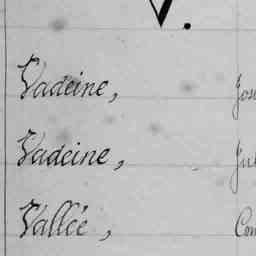 V.
Vadeine, Jos
Vadeine, Jul
Vallée, Com